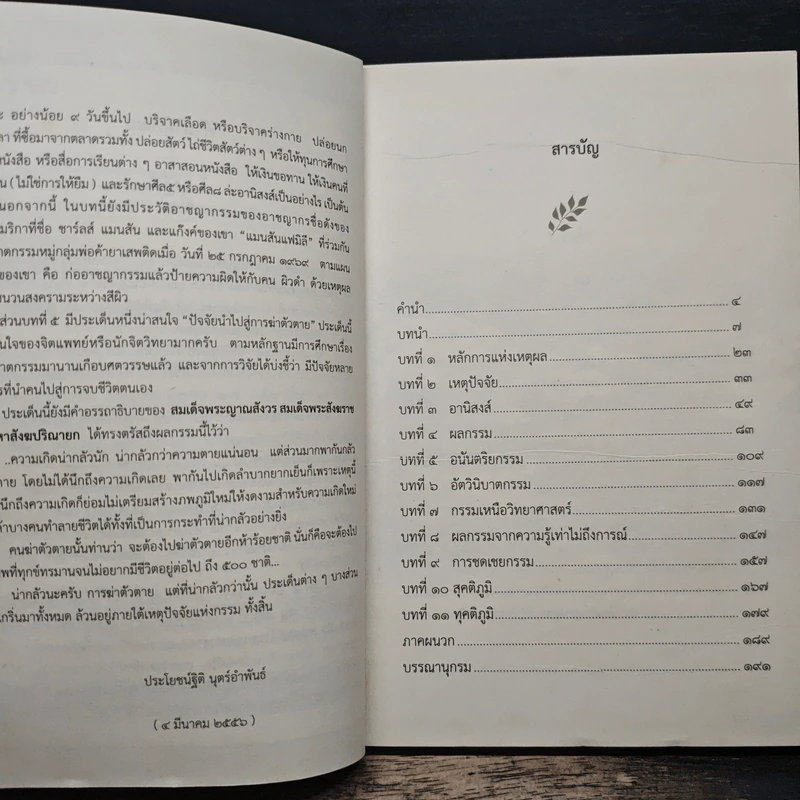 อย่างน้อย ๙ วันขึ้นไป บริจาคเลือด หรือบริจาคร่างกาย ปล่อยนก
ที่ซื้อมาจากตลาดรวมทั้ง ปล่อยสัตว์ ไถ่ชีวิตสัตว์ต่าง ๆ หรือให้ทุนการศึกษา
หนังสือ หรือสื่อการเรียนต่าง ๆ อาสาสอนหนังสือ ให้เงินขอทาน ให้เงินคนที่
( ไม่ใช่การให้ยืม ) และรักษาศีล๕ หรือศีล๘ ล่ะอานิสงส์เป็นอย่างไร เป็นต้น
นอกจากนี้ ในบทนี้ยังมีประวัติอาชญากรรมของอาชญากรชื่อดังของ
มริกาที่ชื่อ ชาร์ลส์ แมนสัน และแก๊งค์ของเขา “แมนสันแฟมิลี” ที่ร่วมกัน
าตกรรมหมู่กลุ่มพ่อค้ายาเสพติดเมื่อ วันที่ ๒๕ กรกฎาคม ๑๙๖๙ ตามแผน
ของเขา คือ ก่ออาชญากรรมแล้วป้ายความผิดให้กับคน ผิวดำ ด้วยเหตุผล
ชนวนสงครามระหว่างสีผิว
ส่วนบทที่ ๕ มีประเด็นหนึ่งน่าสนใจ “ปัจจัยนำไปสู่การฆ่าตัวตาย” ประเด็นนี้
นใจของจิตแพทย์หรือนักจิตวิทยามากครับ ตามหลักฐานมีการศึกษาเรื่อง
าตกรรมมานานเกือบศตวรรษแล้ว และจากการวิจัยได้บ่งชี้ว่า มีปัจจัยหลาย
รที่นำคนไปสู่การจบชีวิตตนเอง
ประเด็นนี้ยังมีคำอรรถาธิบายของ สมเด็จพระญาณสังวร สมเด็จพระสังฆราช
หาสังฆปริณายก ได้ทรงตรัสถึงผลกรรมนี้ไว้ว่า
..ความเกิดน่ากลัวนัก น่ากลัวกว่าความตายแน่นอน แต่ส่วนมากพากันกลัว
าย โดยไม่ได้นึกถึงความเกิดเลย พากันไปเกิดลำบากยากเย็นก็เพราะเหตุนี้
นึกถึงความเกิดก็ย่อมไม่เตรียมสร้างภพภูมิใหม่ให้งดงามสำหรับความเกิดใหม่
บางคนทำลายชีวิตได้ทั้งที่เป็นการกระทำที่น่ากลัวอย่างยิ่ง
คนฆ่าตัวตายนั้นท่านว่า จะต้องไปฆ่าตัวตายอีกห้าร้อยชาติ นั่นก็คือจะต้องไป
พที่ทุกข์ทรมานจนไม่อยากมีชีวิตอยู่ต่อไป ถึง ๕๐๐ ชาติ...
น่ากลัวนะครับ การฆ่าตัวตาย แต่ที่น่ากลัวกว่านั้น ประเด็นต่าง ๆ บางส่วน
เกริ่นมาทั้งหมด ล้วนอยู่ภายใต้เหตุปัจจัยแห่งกรรม ทั้งสิ้น
ประโยชน์ฐิติ นุตร์อำพันธ์
( ๔ มีนาคม ๒๕๕๖ )
สารบัญ
คำนำ ๔
บทนำ ๗
บทที่ ๑ หลักการแห่งเหตุผล ๒๓
บทที่ ๒ เหตุปัจจัย ๓๓
บทที่ ๓ อานิสงส์ ๔๙
บทที่ ๔ ผลกรรม ๘๓
บทที่ ๕ อนันตริยกรรม ๑๐๙
บทที่ ๖ อัตวินิบาตกรรม ๑๑๗
บทที่ ๗ กรรมเหนือวิทยาศาสตร์ ๑๓๑
บทที่ ๘ ผลกรรมจากความรู้เท่าไม่ถึงการณ์ ๑๔๗
บทที่ ๙ การชดเชยกรรม ๑๕๗
บทที่ ๑๐ สุคติภูมิ ๑๖๗
บทที่ ๑๑ ทุคติภูมิ ๑๗๙
ภาคผนวก ๑๘๙
บรรณานุกรม ๑๙๑